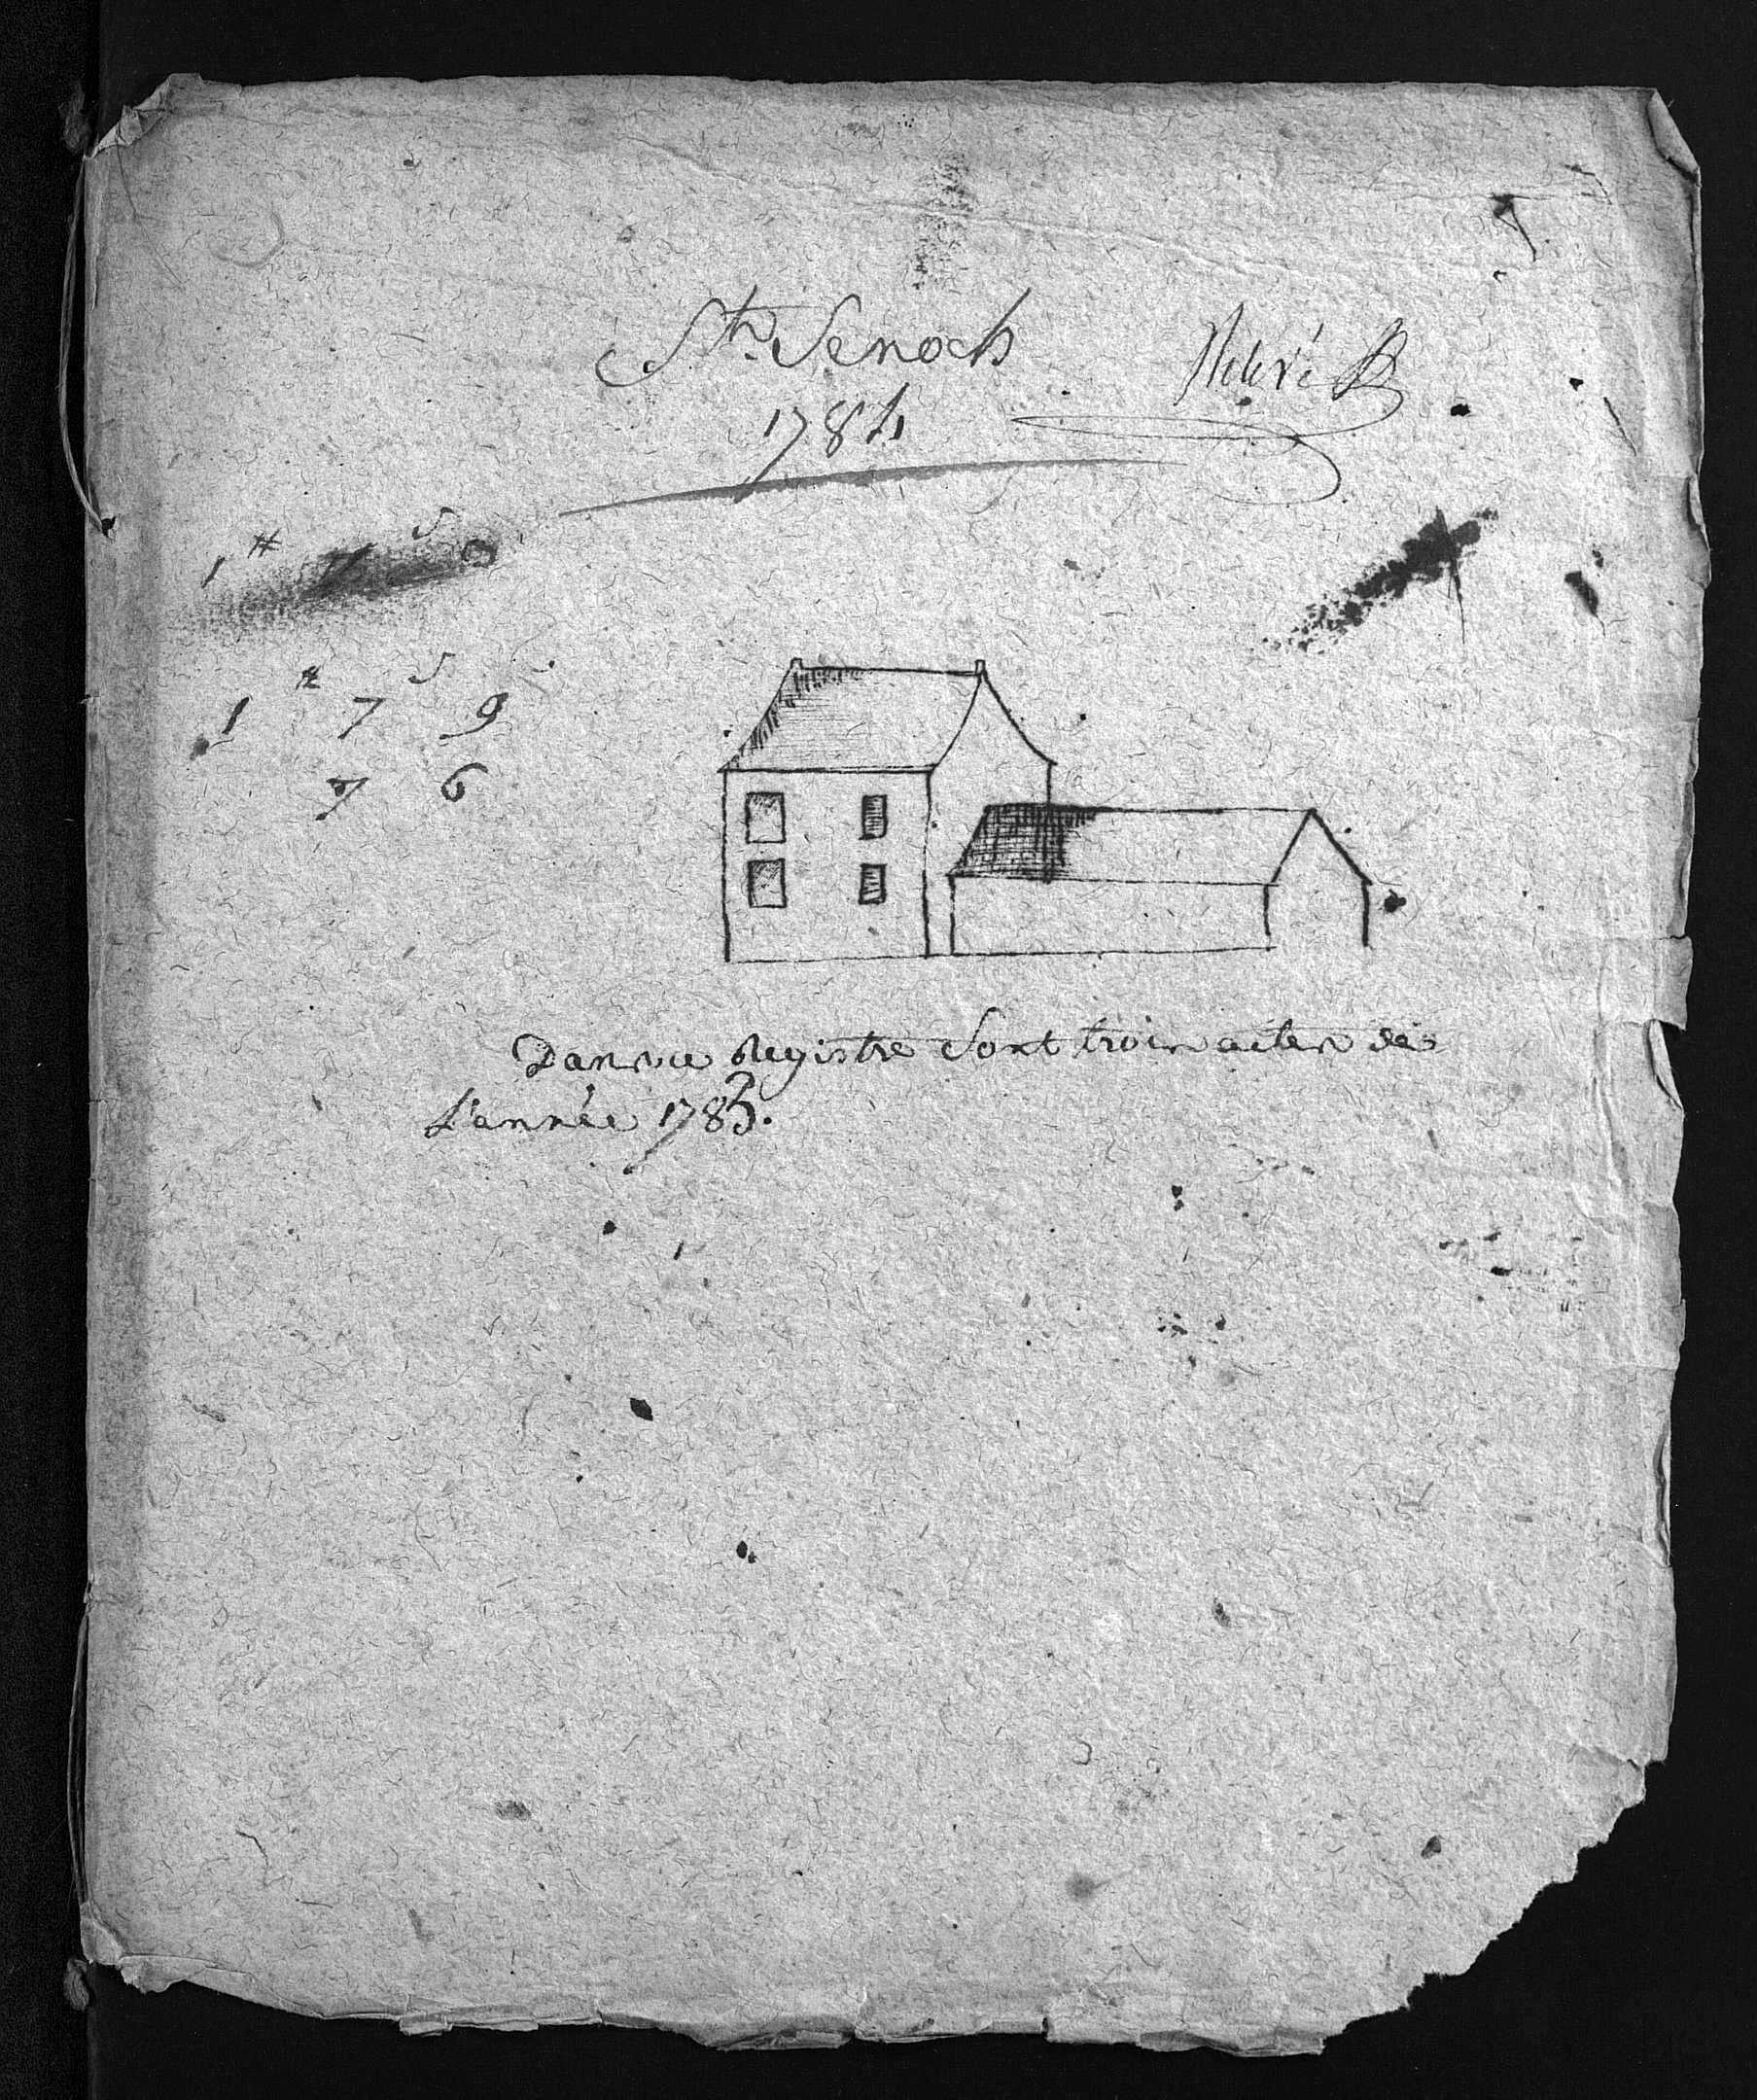 St. Senoch
1784
1 # s
1 # 7 s 9
7 6
Dans ce Registre Sont trois actes de
L'année 1783.